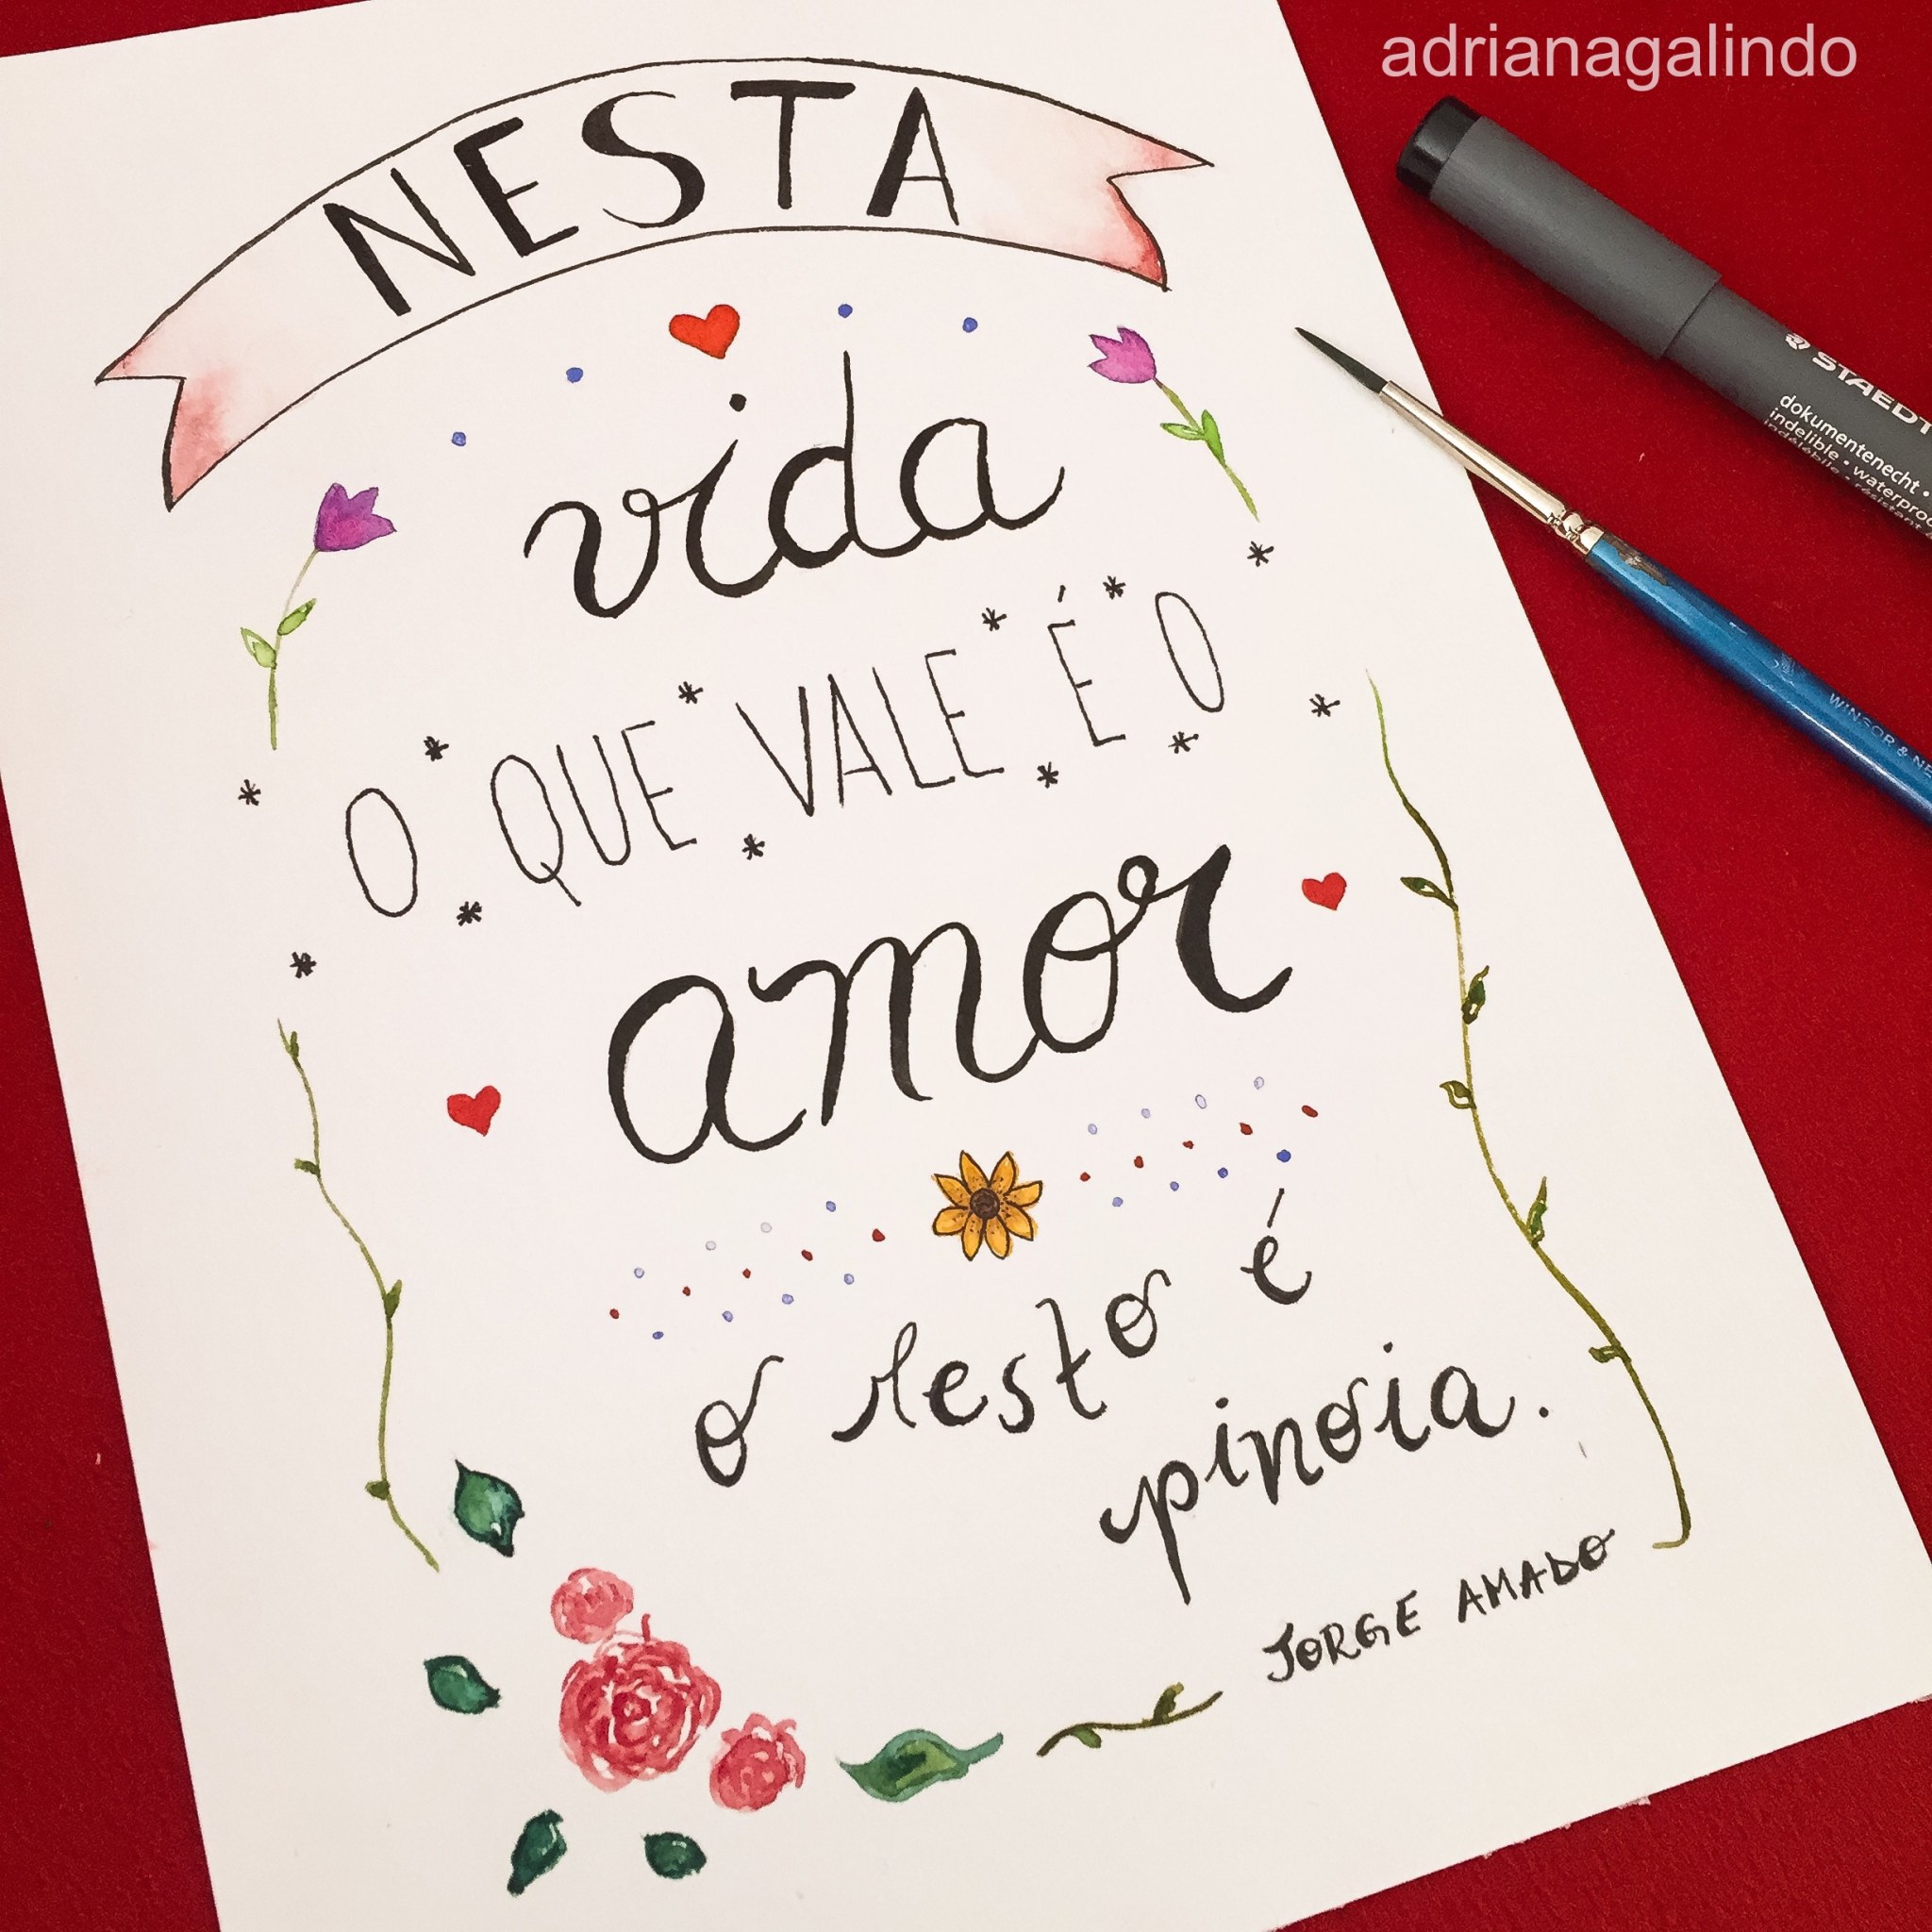 adrianagalindo
NESTA
vida
O QUE VALE É O
amor
o resto é
pinoia.
JORGE AMADO
STAEDT
dokumentenecht •
indelible • waterproo
indélébile • résistant
WINSOR & NE